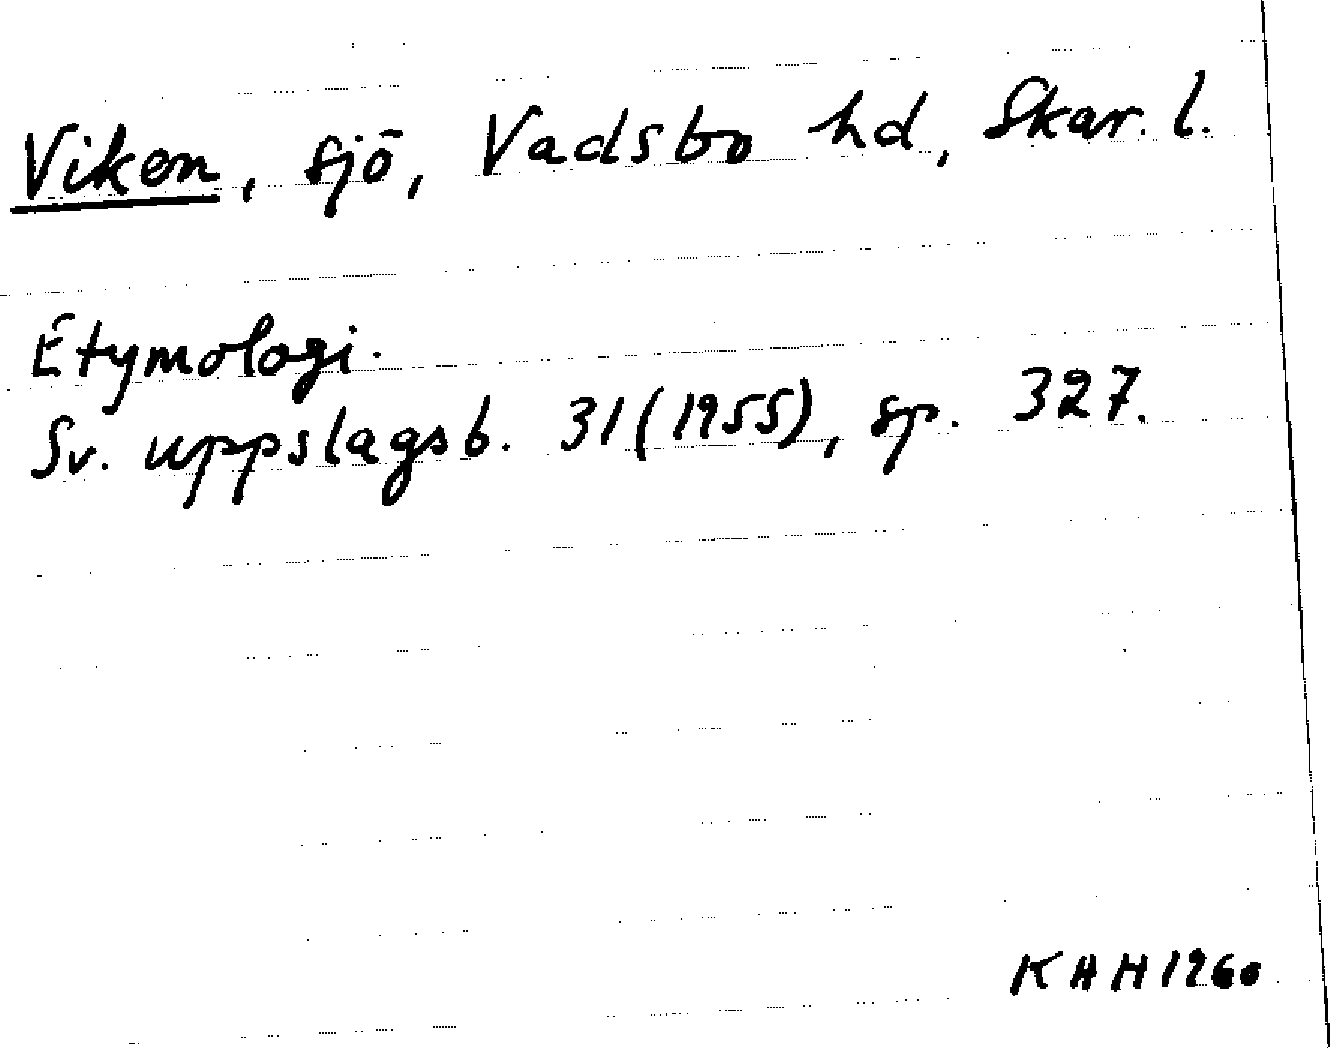 Viken, sjö, Vadsbo hd, Skar. l.
Etymologi.
Sv. uppslagsb. 31 (1955), sp. 327.
KAH 1960